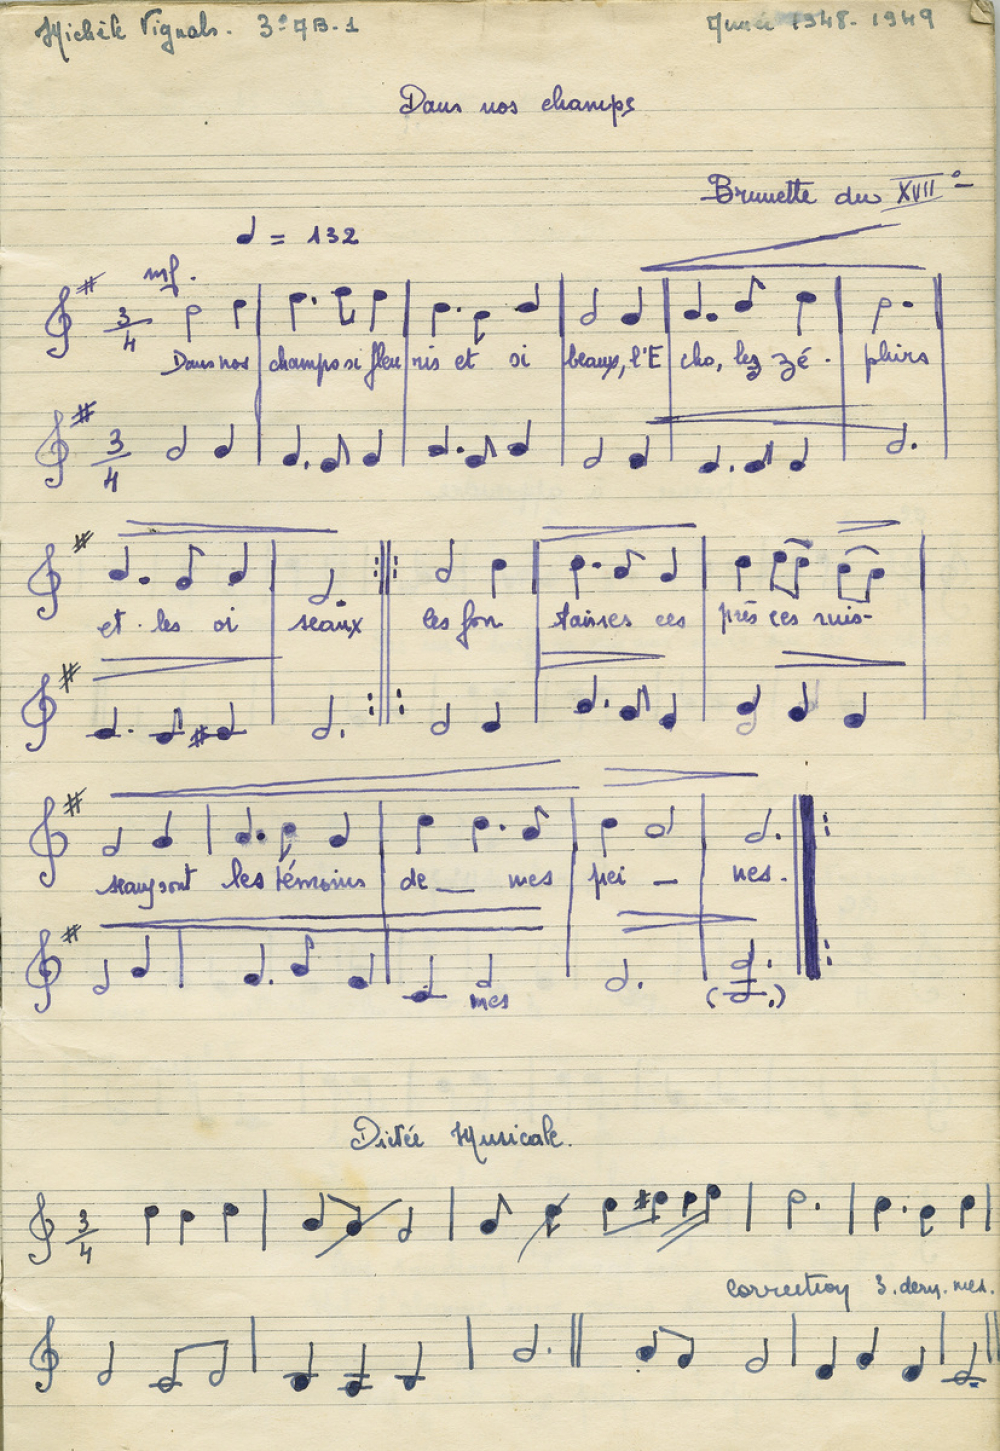 Michèle Vignals. 3º AB-1
Année 1948-1949
Dans nos champs
Brunette du XVIIº
= 132
mf.
3/4
Dans nos champs si fleuris et si beaux, l'Echo, les zé. phirs
3/4
et les oiseaux les fon taines ces prés ces ruis-
seaux sont les témoins de __ mes pei _ nes.
mes
Dictée Musicale.
3/4
correction 3. dern. mes.